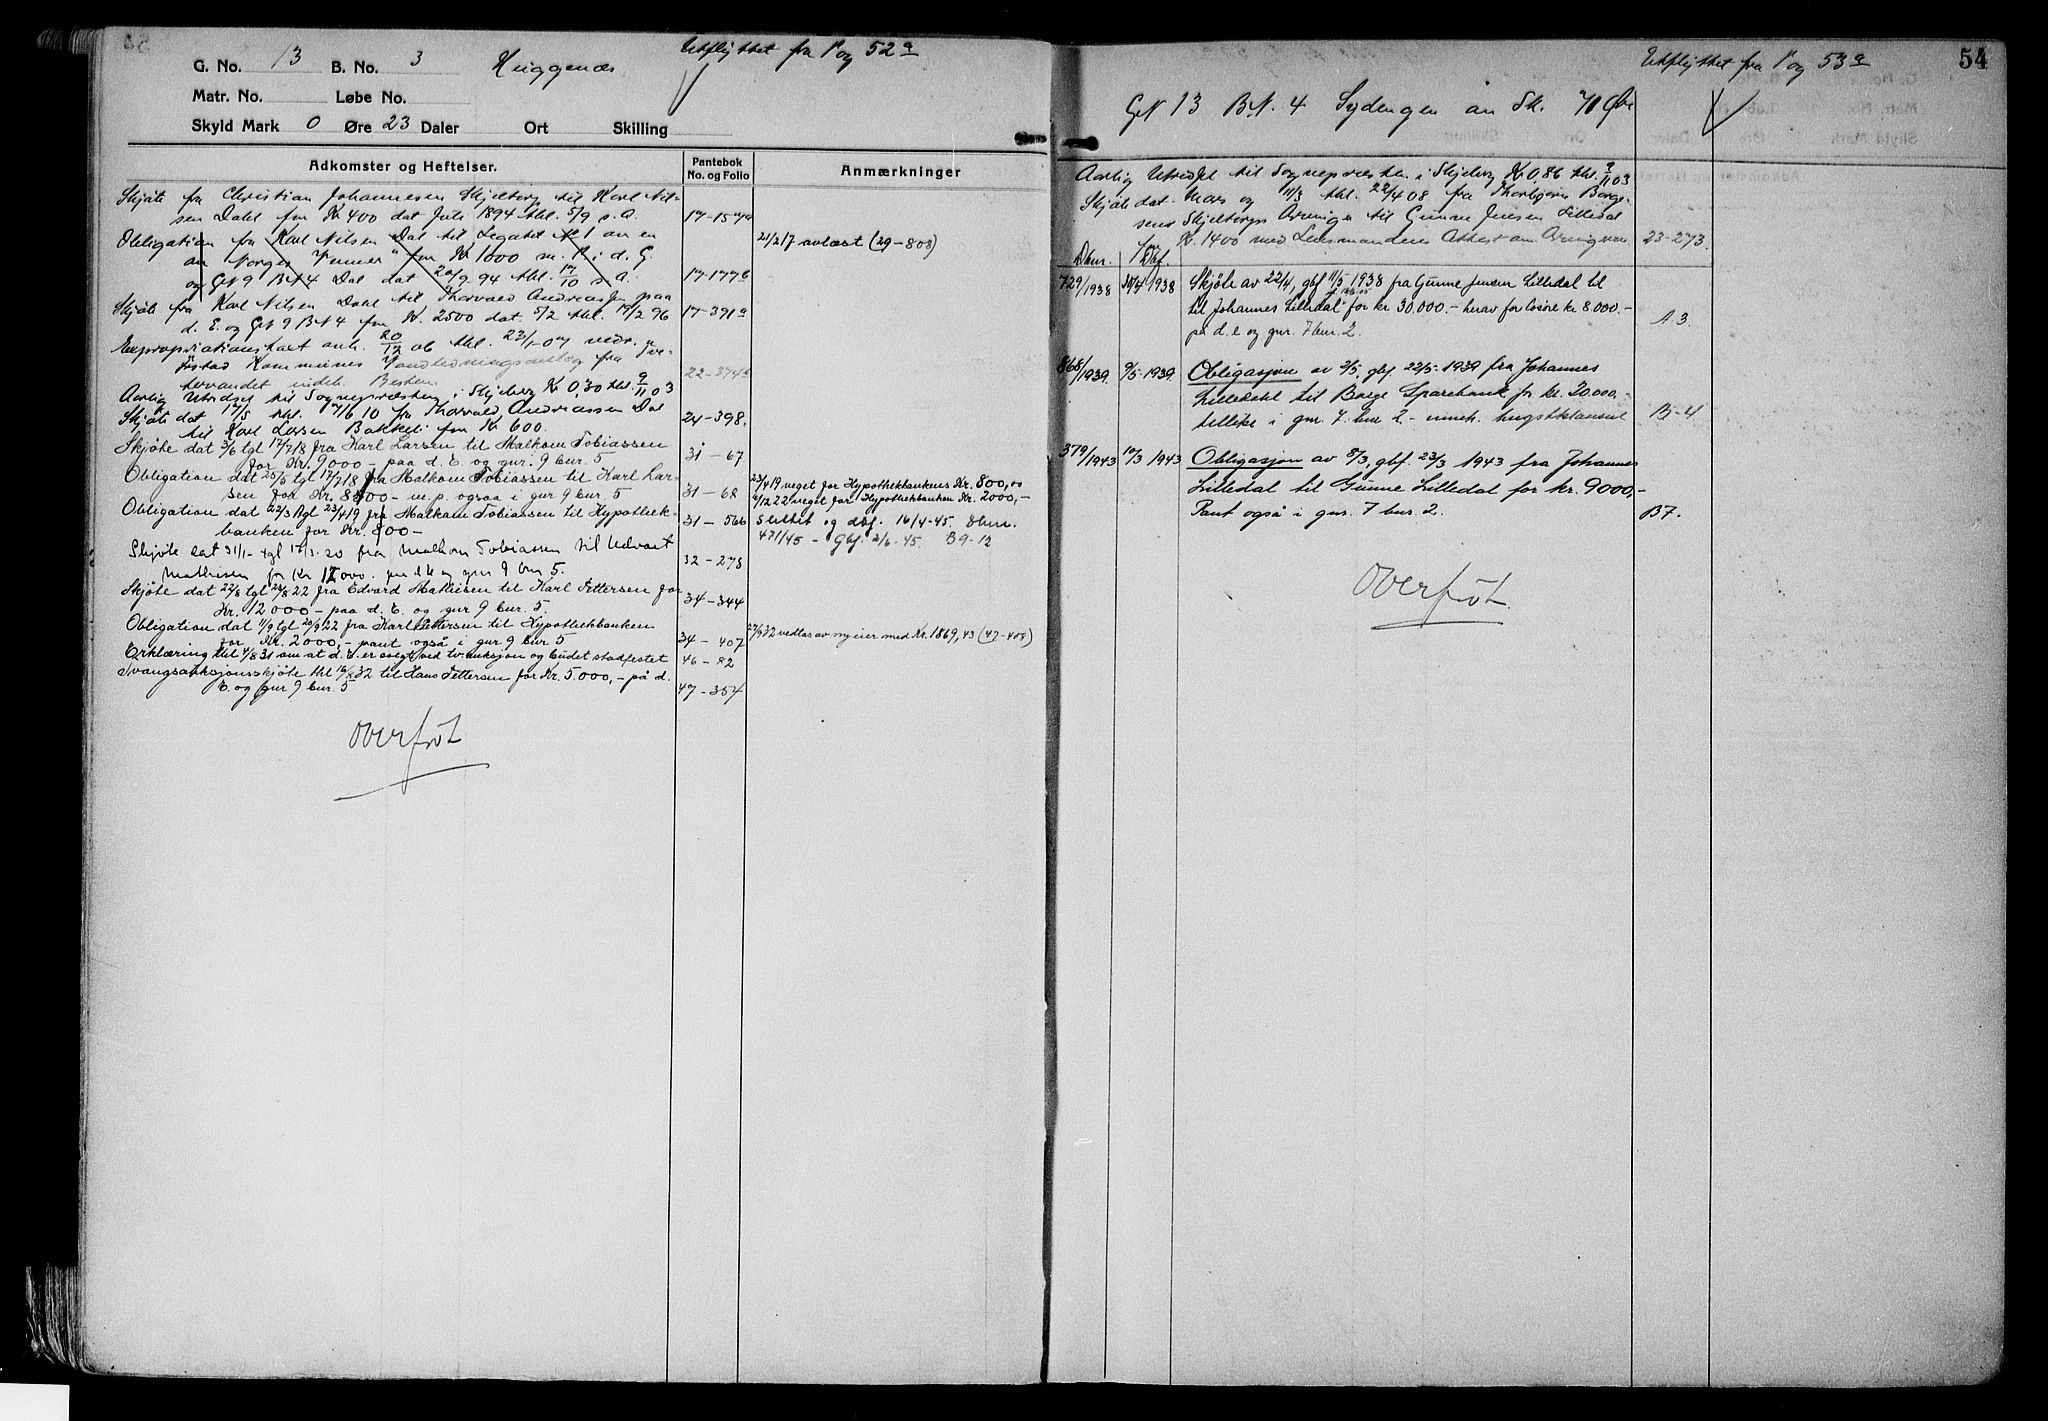 G. No. 13 B. No. 3 Huggenæs Utflyttet fra Pag 52a
Matr. No. Løbe No.
Skyld Mark 0 Øre 23 Daler Ort Skilling
Adkomster og Heftelser. Pantebok No. og Folio Anmærkninger
Skjøte fra Christian Johannesen Skjeltorp til Karl Nil-
sen Dahl for Kr 400 dat Juli 1894 thl. 5/9 s. A. 17-157a
Obligation fra Karl Nilsen Dal til Legatet No 1 av en 21/2 17 avlæst (29-808)
av Norges Venner" for Kr 1000 m. P. i d. G.
og GN 9 BN 4 Dal dat 20/9 94 thl. 17/10 s. A. 17-177b
Skjøte fra Karl Nilsen Dahl til Thorvald Andreassen paa
d. E. og GN 9 BN 4 for Kr. 2500 dat. 5/2 thl. 17/2 96 17-391a
Expropriationstakt avh. 20/12 06 thl. 22/1-07 vedr.
Kommunes Vandledningsanlæg fra Tve-
tervandet indtil Besten 22-374a
Aarlig Utredsel til Sognepræsten i Skjeberg Kr 0,30 thl. 9/11 03
Skjøte dat 17/5 thl. 7/6 10 fra Thorvald Andreassen Dal
til Karl Larsen Bakkeli for Kr 600. 24-398.
Skjøte dat 3/6 tgl 17/7 18 fra Karl Larsen til Malkom Tobiassen
for Kr. 9000 - paa d. E. og gnr. 9 bnr. 5 31-67
Obligation dat 25/5 tgl 17/7 18 fra Malkom Tobiassen til Karl Lar-
sen for Kr. 8500 - m. p. ogsaa i gnr 9 bnr. 5 31-68 23/4 19 veget for Hypothekbankens Kr. 800,00
9/12 22 veget for Hypothekbanken Kr. 2000,-
Obligation dat 22/3 tgl 23/4 19 fra Malkom Tobiassen til Hypothek-
banken for Kr. 800 - 31-566 Slettet og dbf. 16/4-45. dbnr.
471/45 - Gbf. 2/6-45. B9-12
Skjøte dat 31/1- tgl 17/3-20 fra Malkom Tobiassen til Edvart
Mathisen for Kr 12000. paa d E og gnr 9 bnr 5. 32-278
Skjøte dat 22/8 tgl 24/8 22 fra Edvard Mathiesen til Karl Pettersen for
Kr. 12 000 - paa d. E. og gnr 9 bnr. 5. 34-344
Obligation dat 11/9 tgl 20/9 22 fra Karl Pettersen til Hypothekbanken
for Kr. 2000,- pant også i gnr 9 bnr 5 34-407 27/9 32 vedtas av ny eier med Kr. 1869,43 (47-404)
Erklæring thl 4/8 31 om at d. E. er solgt ved tv. auksjon og budet stadfestet 46-82
Tvangsauksjonsskjøte thl 16/8 32 til Hans Pettersen for Kr. 5.000,- på d.
E. og gnr 9 bnr. 5 47-354
Overført
Utflyttet fra Pag 53a 54
GN 13 BN. 4 Sydengen av Sk. 71 Øre
Aarlig Utredsel til Sognepræsten i Skjeberg Kr 0,86 thl. 9/11 03
Skjøte dat. Mars og 11/3 thl. 22/4 08 fra Thorbjørn Borge-
sens Skjeltorps Arvinger til Gunne Jensen Lilledal
for Kr. 1400 med Lensmandens Attest om Arvingene 23-273.
Dbnr. Dbf.
729/1938 30/4 1938 Skjøte av 22/4, gbf 11/5 1938 fra Gunne Jensen Lilledal til
til Johannes Lilledal for kr 30.000.- herav for løsøre kr 8.000.-
på d. e og gnr. 7 bnr. 2. A 3.
868/1939. 9/5-1939. Obligasjon av 2/5, gbf 22/5-1939 fra Johannes
Lilledahl til Borge Sparebank for kr. 20.000,-
tillike i gnr. 7. bnr 2 - inneh. hugstklausul B-4
379/1943 10/3 1943 Obligasjon av 8/3, gbf. 23/3 1943 fra Johannes
Lilledal til Gunne Lilledal for kr. 9000,-
Pant også i gnr. 7 bnr. 2. B7.
Overført.